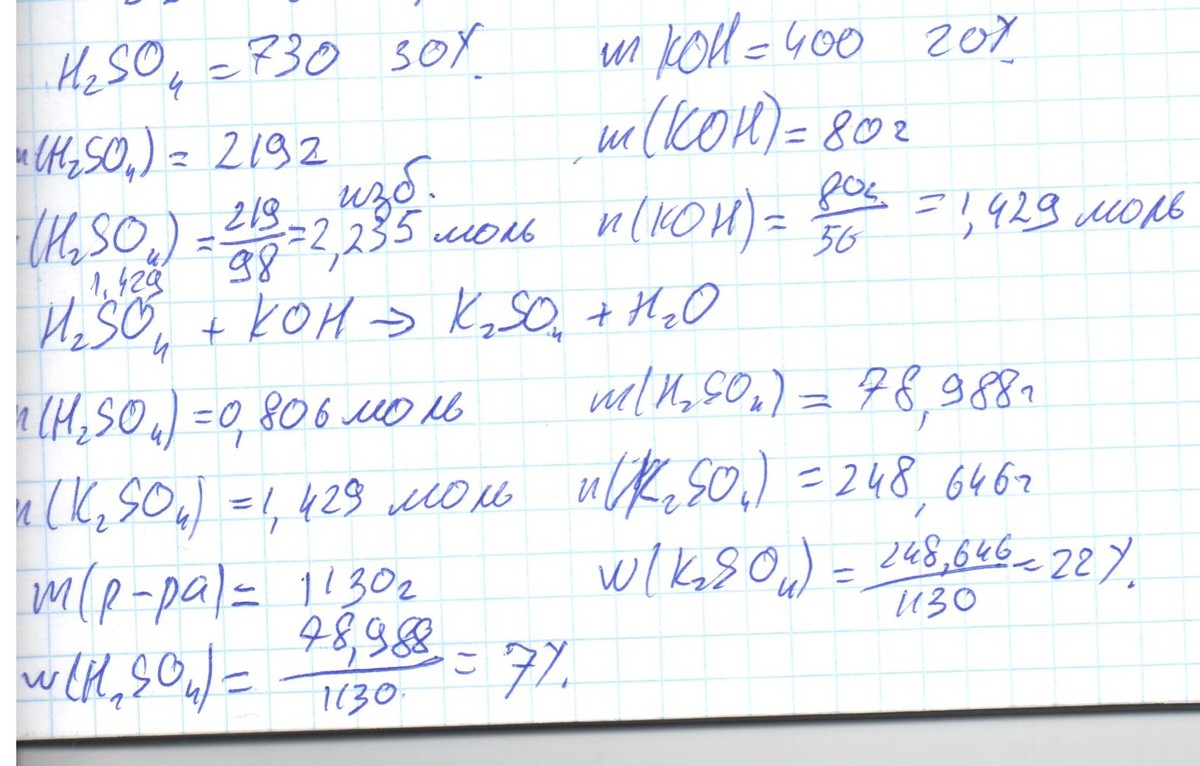 H₂SO₄ = 730 30% m KOH = 400 20%
(H₂SO₄) = 219г m(KOH) = 80г
изб.
(H₂SO₄) = 219/98 = 2,235 моль n(KOH) = 80/56 = 1,429 моль
1,429
H₂SO₄ + KOH → K₂SO₄ + H₂O
(H₂SO₄) = 0,806 моль m(H₂SO₄) = 78,988г
(K₂SO₄) = 1,429 моль n(K₂SO₄) = 248,646г
m(р-ра) = 1130г w(K₂SO₄) = 248,646/1130 = 22%.
w(H₂SO₄) = 78,988/1130 = 7%.